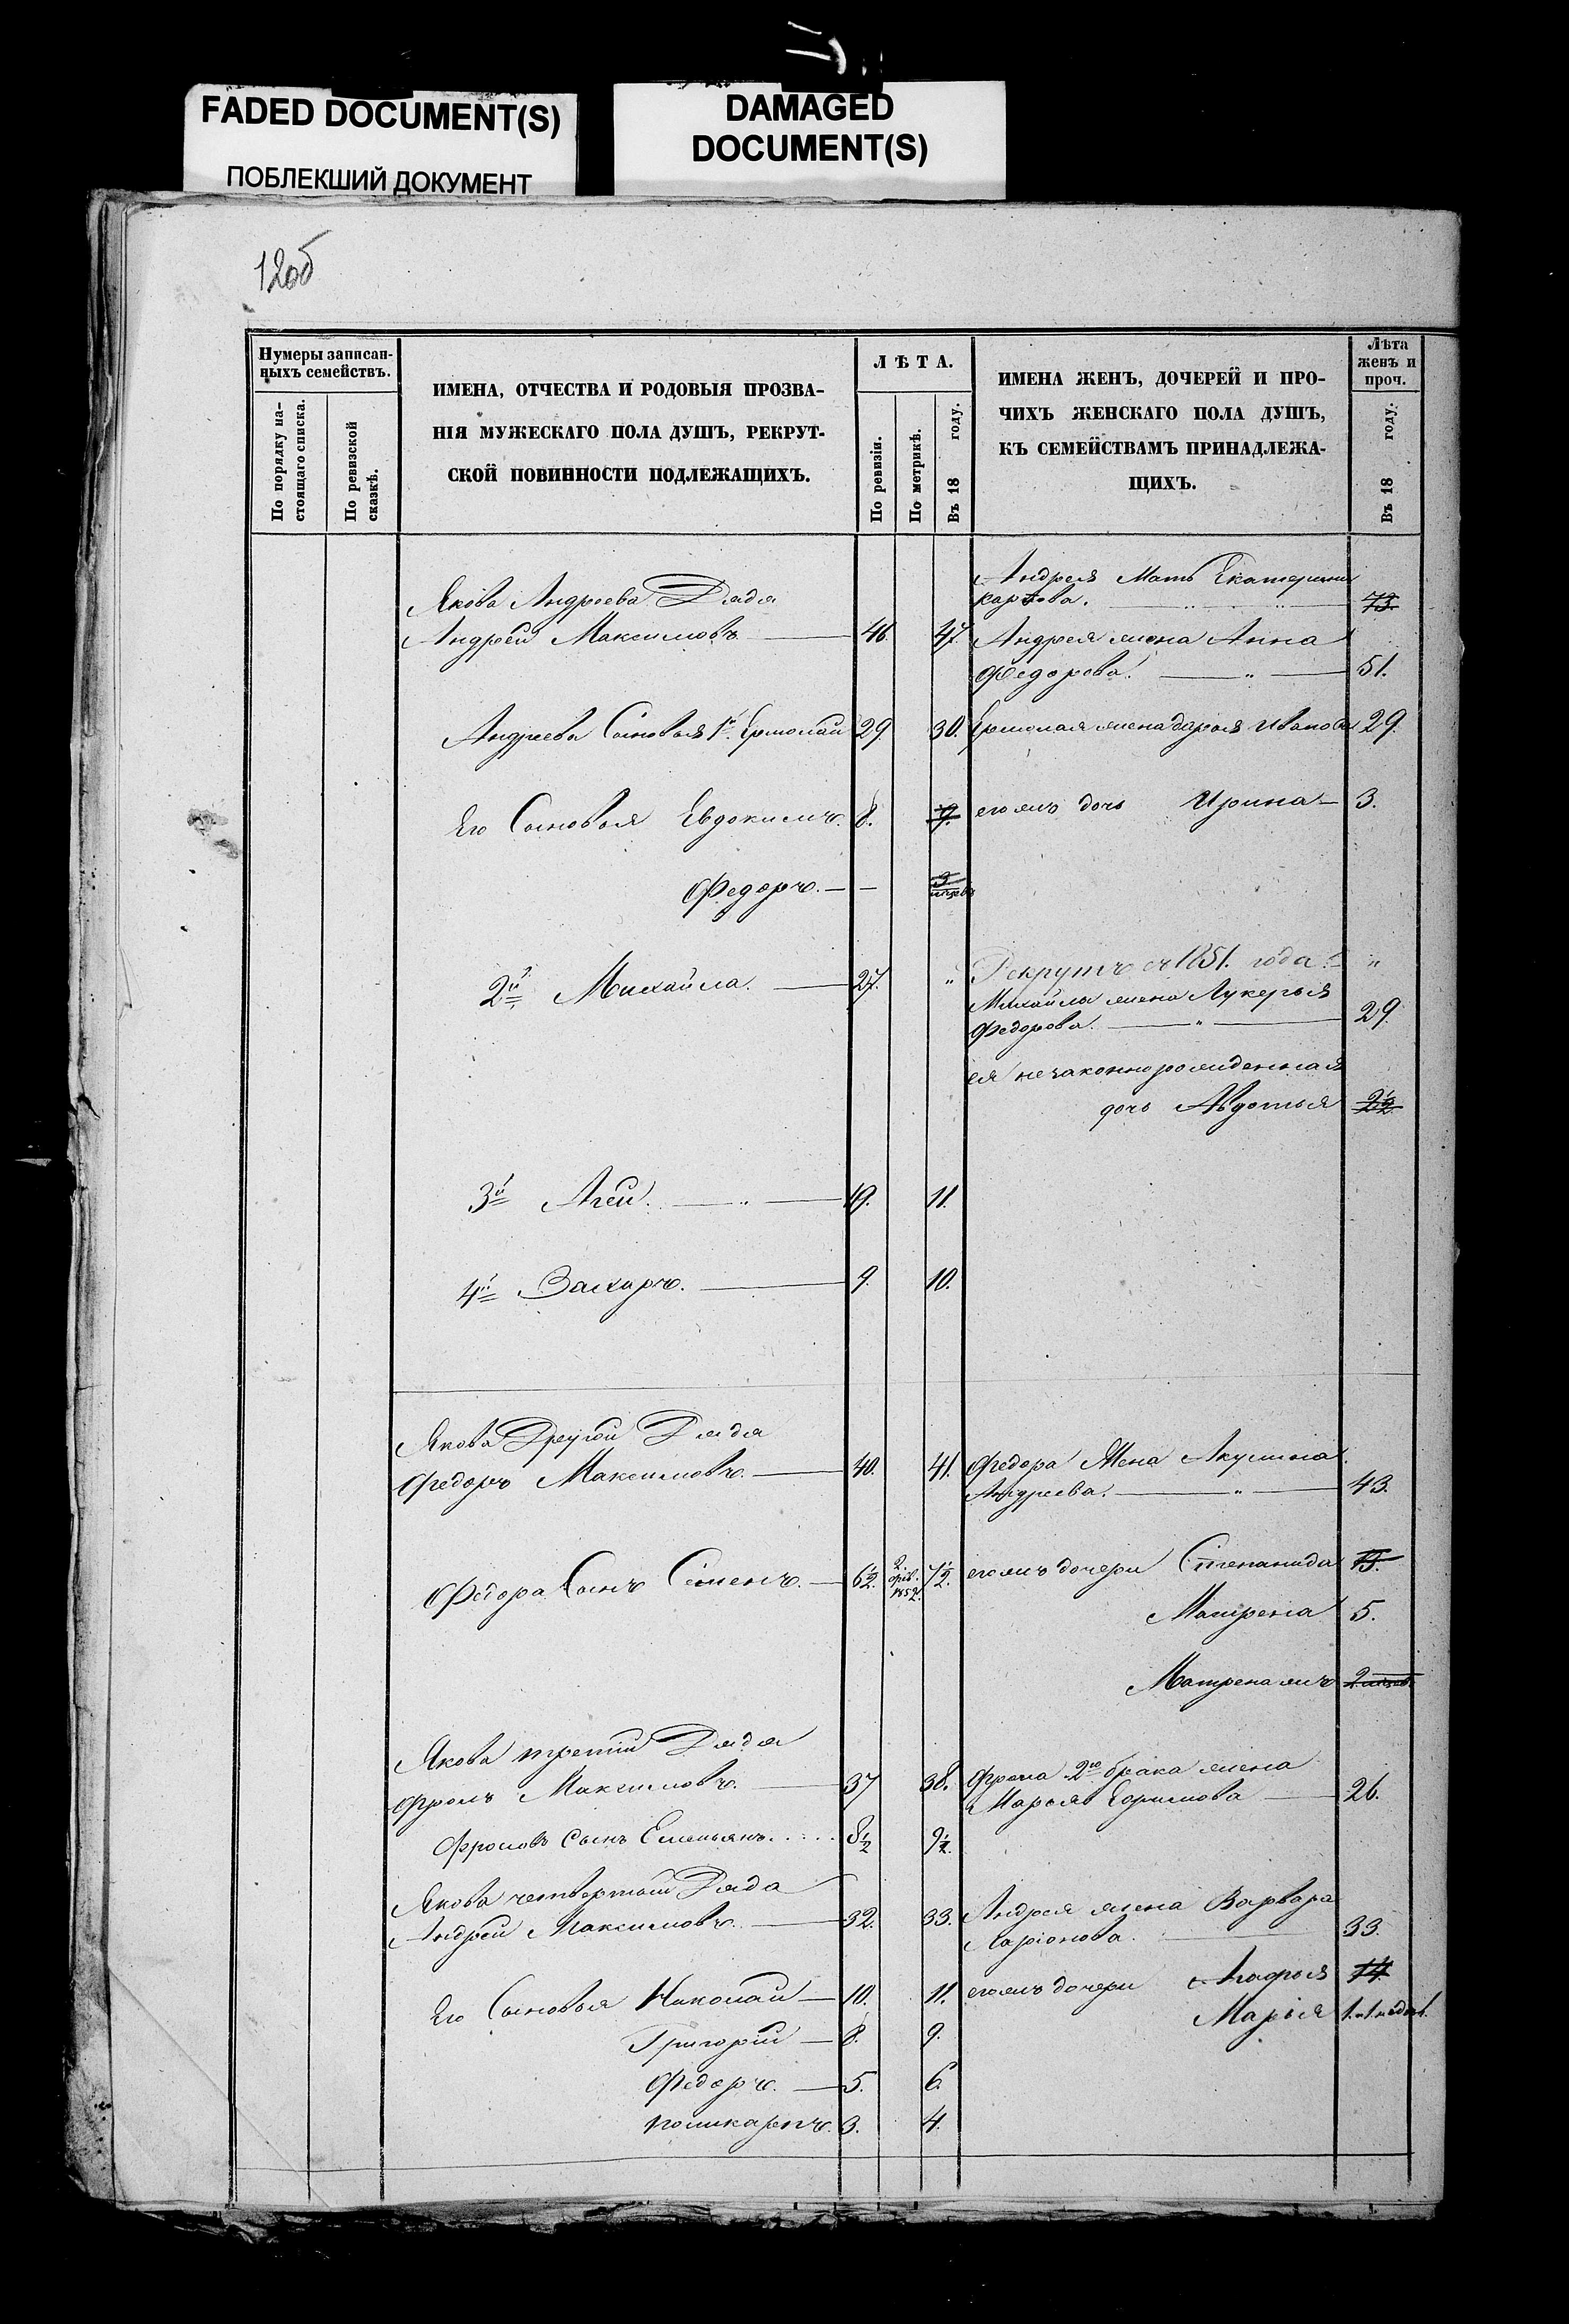 FADED DOCUMENT(S)
ПОБЛЕКШИЙ ДОКУМЕНТ
DAMAGED
DOCUMENT(S)
12об
Нумеры записан-
ныхъ семействъ.
По порядку на-
стоящаго списка.
По ревизской
сказкѣ.
ИМЕНА, ОТЧЕСТВА И РОДОВЫЯ ПРОЗВА-
НІЯ МУЖЕСКАГО ПОЛА ДУШЪ, РЕКРУТ-
СКОЙ ПОВИННОСТИ ПОДЛЕЖАЩИХЪ.
ЛѢТА.
По ревизіи.
По метрикѣ.
Въ 18 году.
ИМЕНА ЖЕНЪ, ДОЧЕРЕЙ И ПРО-
ЧИХЪ ЖЕНСКАГО ПОЛА ДУШЪ,
КЪ СЕМЕЙСТВАМЪ ПРИНАДЛЕЖА-
ЩИХЪ.
Лѣта
женъ и
проч.
Въ 18 году.
Андрея Мать Екатерина
Якова Андреева Дядя
Карпова. 73.
Андрей Максимовъ 46. 47. Андрея жена Анна
Федорова. 51.
Андреева Сыновья 1й Ермолай 29. 30. Ермолая жена дарья Иванова 29.
Его Сыновья Евдокимъ. 8. 9. его жъ дочь Ирина 3.
Федоръ. — — 3
2й Михайла. 27. " Рекрутъ съ 1851. года. "
Михайлы жена Лукерья
Федорова. 29.
ея незаконнорожденная
дочь Авдотья 2½
3й Агей. 19. 11.
4й Захаръ. 9. 10.
Якова Другой Дядя
Федоръ Максимовъ. 40. 41. Федора Жена Акулина
Андреева. 43.
Федора Сынъ Семенъ. 6½. 2. 1852. 7½. его жъ дочери Степанида 15.
Матрена 5.
Матрена жъ
Якова третій Дядя
Фролъ Максимовъ. 37 38. Фрола 2го брака жена
Марья Ефимова 26.
Фроловъ Сынъ Емельянъ 8½ 9½.
Якова четвертый Дядя
Андрей Максимовъ. 32. 33. Андрея жена Варвара
Ларіонова. 33.
Его Сыновья Николай 10. 11. его жъ дочери Агафья 14
Марья
Григорій 8. 9.
Федоръ. 5. 6.
поликарпъ. 3. 4.